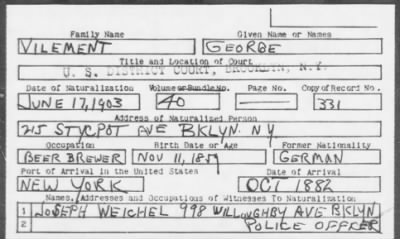 Family Name Given Name or Names
VILEMENT GEORGE
Title and Location of Court
U. S. DISTRICT COURT, BROOKLYN, N.Y.
Date of Naturalization Volume or Bundle No. Page No. Copy of Record No.
JUNE 17, 1903 40 — 331
Address of Naturalized Person
215 STYCPOT AVE BKLYN. N.Y.
Occupation Birth Date or Age Former Nationality
BEER BREWER NOV 11, 1859 GERMAN
Port of Arrival in the United States Date of Arrival
NEW YORK OCT 1882
Names, Addresses and Occupations of Witnesses To Naturalization
1 JOSEPH WEICHEL 998 WILLOUGHBY AVE BKLYN
2 POLICE OFFICER